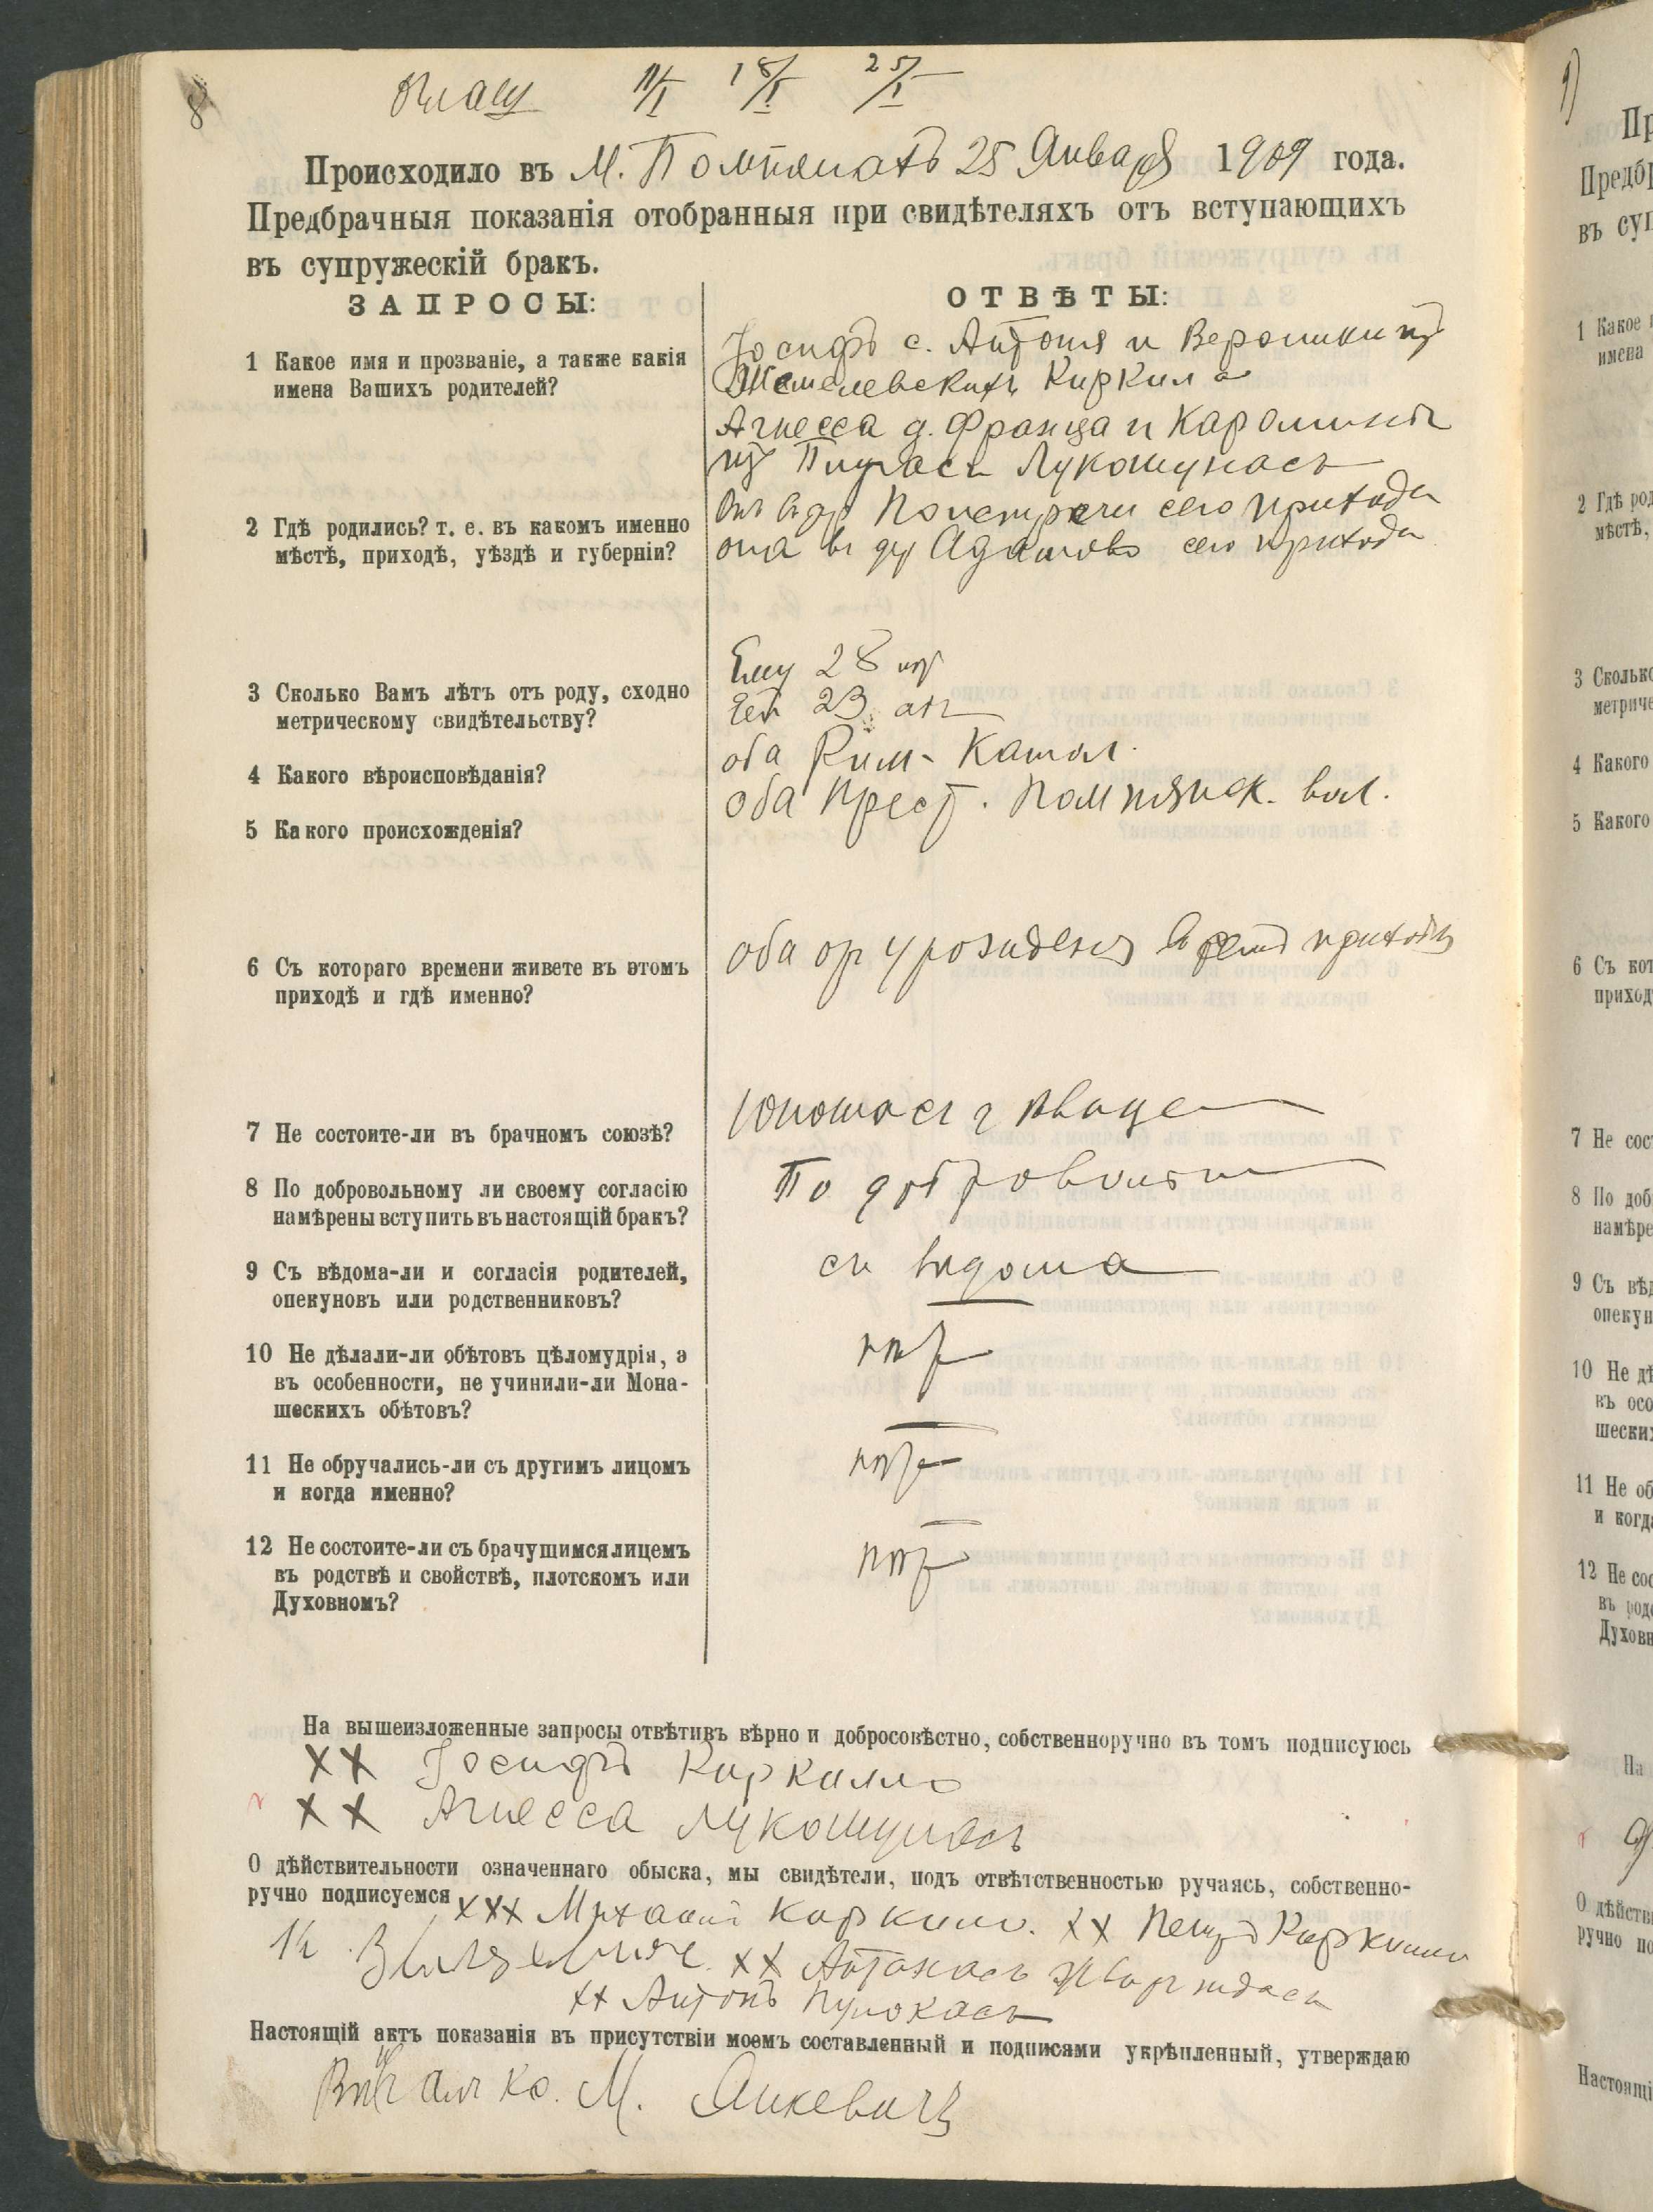 8
11/I 18/I 25/I
Происходило въ М. Помпянахъ 25 Января 1909 года.
Предбрачныя показанія отобранныя при свидѣтеляхъ отъ вступающихъ
въ супружескій бракъ.
ЗАПРОСЫ:
ОТВѢТЫ:
1 Какое имя и прозваніе, а также какія
имена Вашихъ родителей?
Іосифъ с. Антонія и Вероники изъ
Киркилло
Агнесса д. Франца и Каролины
изъ Лукошунасъ
2 Гдѣ родились? т. е. въ какомъ именно
мѣстѣ, приходѣ, уѣздѣ и губерніи?
Онъ въ др сего прихода
она въ др Адамово сего прихода
3 Сколько Вамъ лѣтъ отъ роду, сходно
метрическому свидѣтельству?
Ему 28 лѣт
Ей 23 лѣт
4 Какого вѣроисповѣданія?
оба Рим-Катол.
5 Какого происхожденія?
оба Крест. Помпянск. вол.
6 Съ котораго времени живете въ этомъ
приходѣ и гдѣ именно?
оба от урожденія въ семъ приходѣ
7 Не состоите-ли въ брачномъ союзѣ?
Юноша съ дѣвицею
8 По добровольному ли своему согласію
намѣрены вступить въ настоящій бракъ?
По добровольн
9 Съ вѣдома-ли и согласія родителей,
опекуновъ или родственниковъ?
съ вѣдома
10 Не дѣлали-ли обѣтовъ цѣломудрія, а
въ особенности, не учинили-ли Мона-
шескихъ обѣтовъ?
нѣт
11 Не обручались-ли съ другимъ лицомъ
и когда именно?
нѣт
12 Не состоите-ли съ брачущимся лицемъ
въ родствѣ и свойствѣ, плотскомъ или
Духовномъ?
нѣт
На вышеизложенные запросы отвѣтивъ вѣрно и добросовѣстно, собственноручно въ томъ подписуюсь
ХХ Іосифъ Киркилло
ХХ Агнесса Лукошунасъ
О дѣйствительности означеннаго обыска, мы свидѣтели, подъ отвѣтственностью ручаясь, собственно-
ручно подписуемся ХХХ Михаилъ Киркилло. ХХ Петръ Киркилло
ХХ Антонасъ
ХХ Антонъ
Настоящій актъ показанія въ присутствіи моемъ составленный и подписями укрѣпленный, утверждаю
М. Янкевичъ